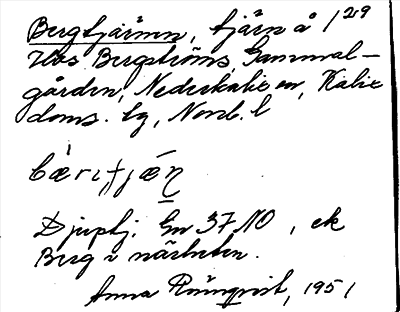 Bergtjärnen, tjärn å 1/29
Bergströms Gammel-
gården, Nederkalix sn, Kalix
doms. lg, Norrb. l
bæ̀rıtjǽn
Djuptj. Gn 37 NO, ek
Berg i närheten.
Anna Rönnqvist, 1951